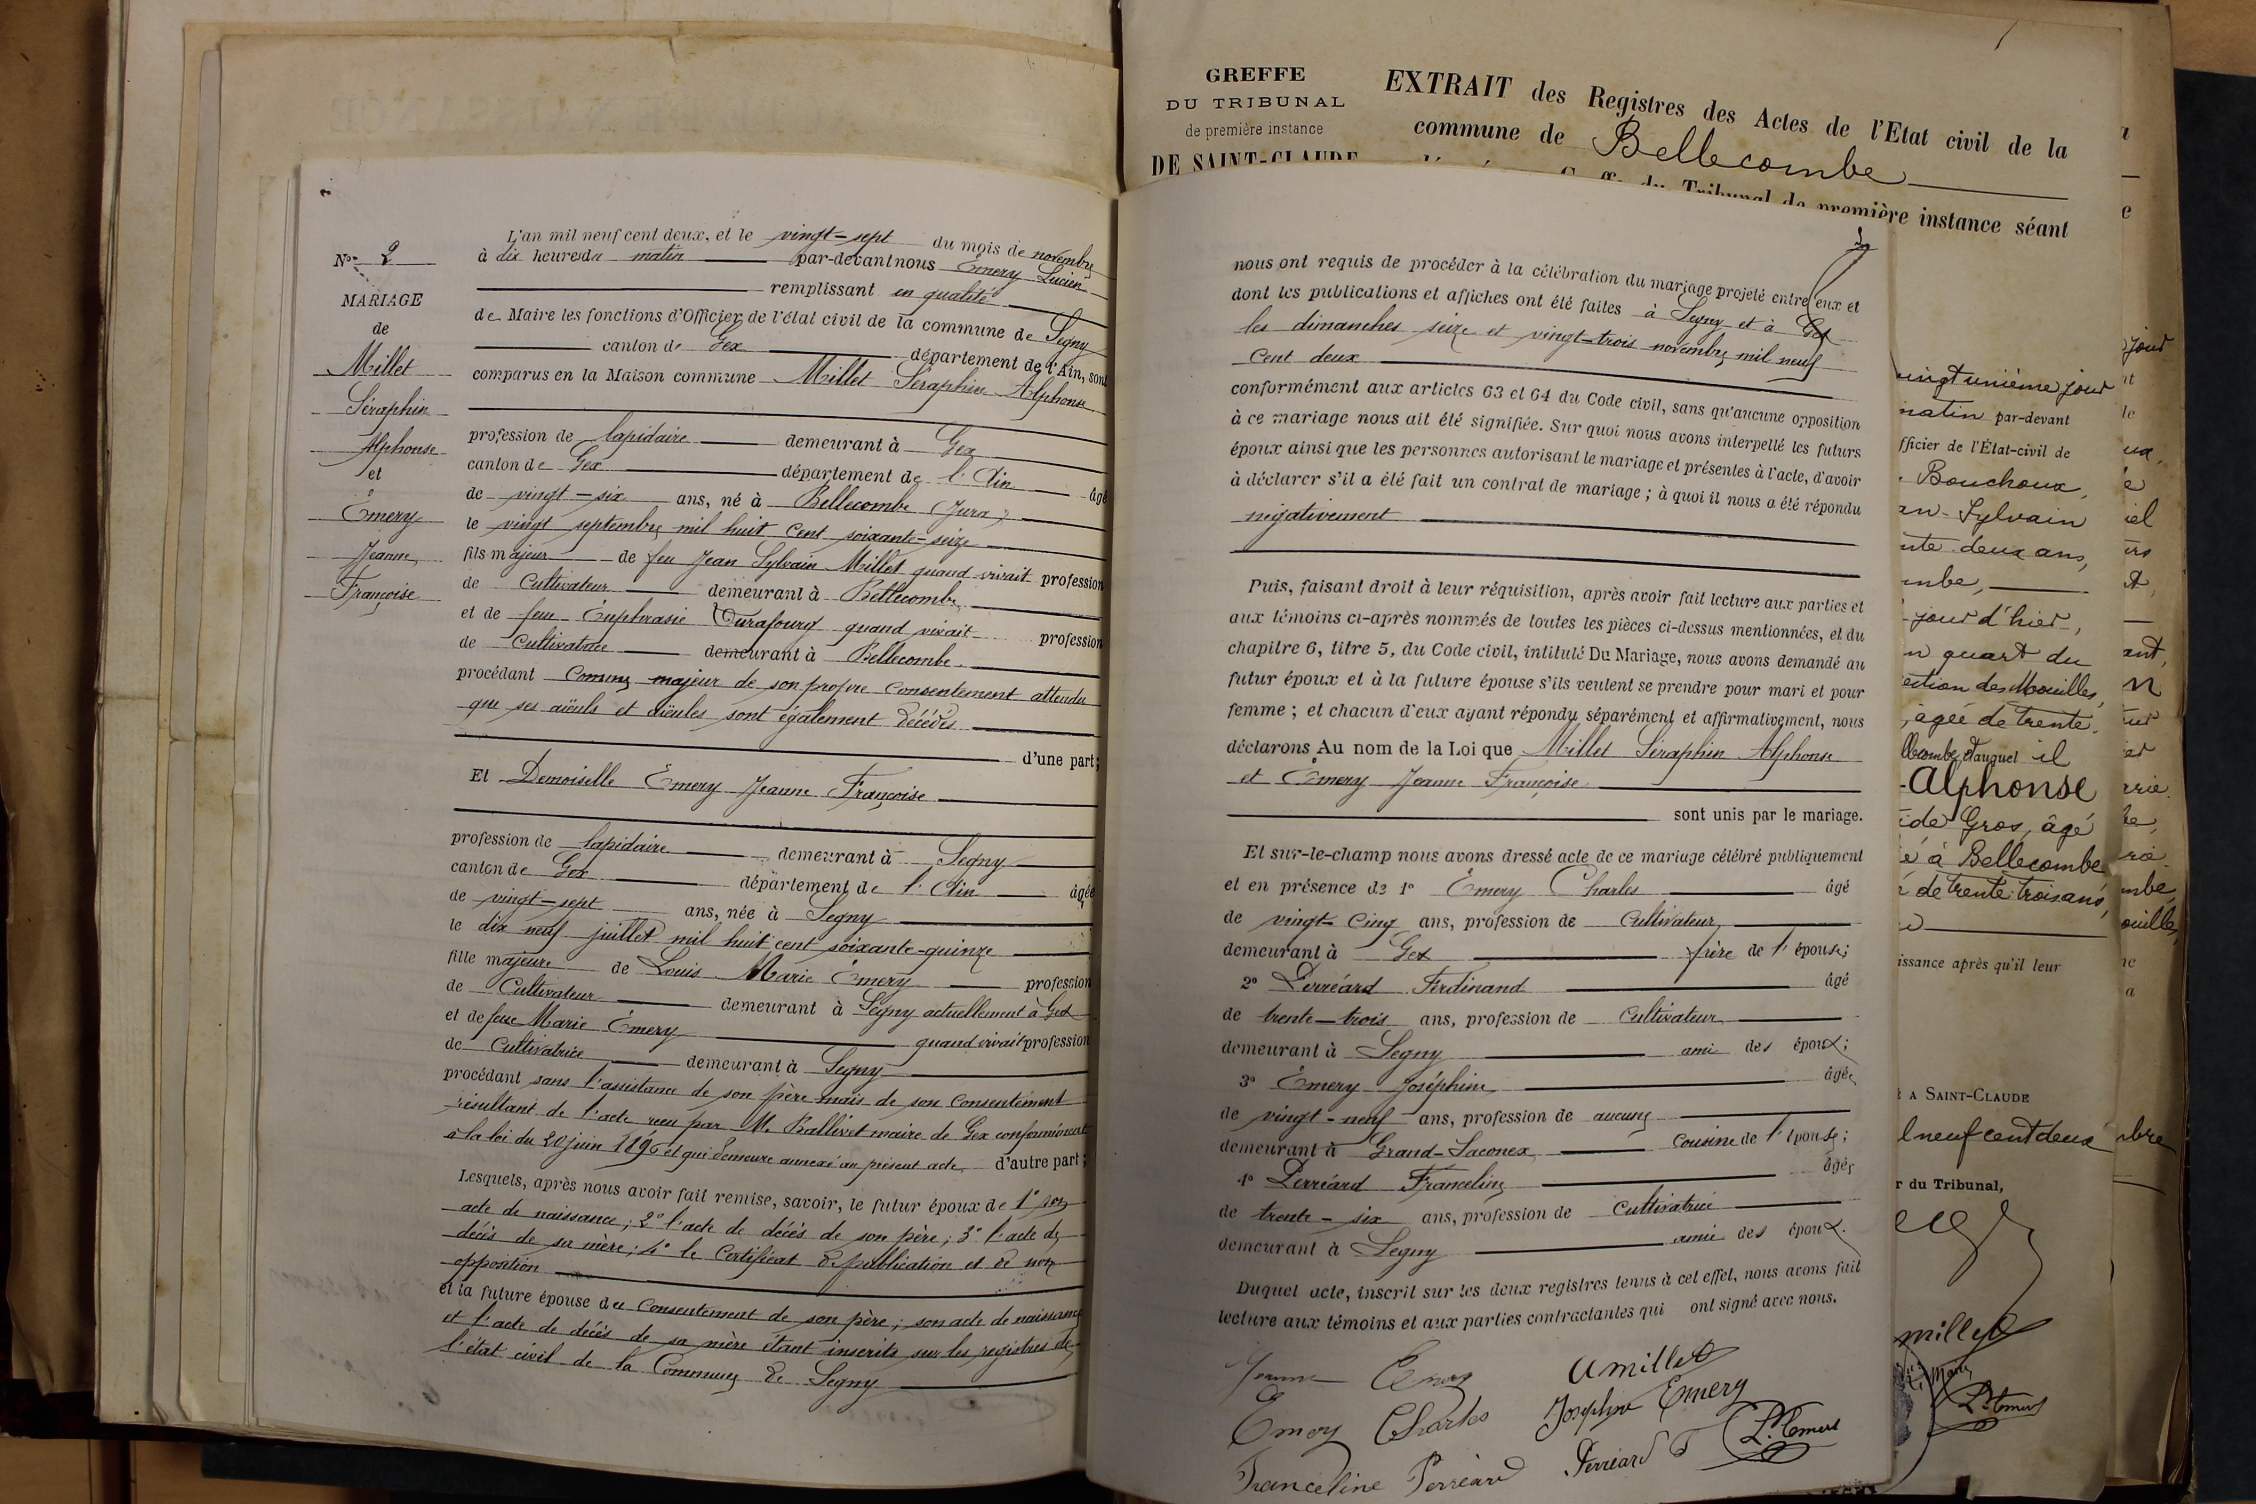 L'an mil neuf cent deux, et le vingt-sept du mois de novembre
à dix heures du matin par-devant nous Émery Lucien
remplissant en qualité
de Maire les fonctions d'Officier de l'état civil de la commune de Segny
canton de Gex département de l'Ain, sont
comparus en la Maison commune Millet Séraphin Alphonse
profession de lapidaire demeurant à Gex
canton de Gex département de l'Ain âgé
de vingt-six ans, né à Bellecombe (Jura)
le vingt septembre mil huit cent soixante-seize
fils majeur de feu Jean Sylvain Millet quand vivait profession
de cultivateur demeurant à Bellecombe
et de feu Euphrasie quand vivait profession
de Cultivatrice demeurant à Bellecombe
procédant comme majeur de son propre consentement attendu
que ses aïeuls et aïeules sont également décédés
d'une part;
Et Demoiselle Émery Jeanne Françoise
profession de lapidaire demeurant à Segny
canton de Gex département de l'Ain âgée
de vingt-sept ans, née à Segny
le dix neuf juillet mil huit cent soixante-quinze
fille majeure de Louis Marie Émery profession
de Cultivateur demeurant à Segny actuellement à Gex
et de feue Marie Émery quand vivait profession
de Cultivatrice demeurant à Segny
procédant sans l'assistance de son père mais de son consentement
résultant de l'acte reçu par M. Ballivet maire de Gex conformément
à la loi du 20 juin 1896 et qui demeure annexé au présent acte d'autre part;
Lesquels, après nous avoir fait remise, savoir, le futur époux de 1° son
acte de naissance; 2° l'acte de décès de son père; 3° l'acte de
décès de sa mère; 4° le Certificat de publication et de non
opposition
et la future épouse du consentement de son père; son acte de naissance
et l'acte de décès de sa mère étant inscrits sur les registres de
l'état civil de la Commune de Segny
N° 2
MARIAGE
de
Millet
Séraphin
Alphonse
et
Émery
Jeanne
Françoise
GREFFE
DU TRIBUNAL
de première instance
DE SAINT-CLAUDE
EXTRAIT des Registres des Actes de l'Etat civil de la
commune de Bellecombe
Greffe du Tribunal de première instance séant
nous ont requis de procéder à la célébration du mariage projeté entre eux et
dont les publications et affiches ont été faites à Segny et à Gex
les dimanches seize et vingt-trois novembre mil neuf
cent deux
conformément aux articles 63 et 64 du Code civil, sans qu'aucune opposition
à ce mariage nous ait été signifiée. Sur quoi nous avons interpellé les futurs
époux ainsi que les personnes autorisant le mariage et présentes à l'acte, d'avoir
à déclarer s'il a été fait un contrat de mariage; à quoi il nous a été répondu
négativement
Puis, faisant droit à leur réquisition, après avoir fait lecture aux parties et
aux témoins ci-après nommés de toutes les pièces ci-dessus mentionnées, et du
chapitre 6, titre 5, du Code civil, intitulé Du Mariage, nous avons demandé au
futur époux et à la future épouse s'ils veulent se prendre pour mari et pour
femme; et chacun d'eux ayant répondu séparément et affirmativement, nous
déclarons Au nom de la Loi que Millet Séraphin Alphonse
et Émery Jeanne Françoise
sont unis par le mariage.
Et sur-le-champ nous avons dressé acte de ce mariage célébré publiquement
et en présence de 1° Émery Charles âgé
de vingt-cinq ans, profession de cultivateur
demeurant à Gex frère de l'épouse;
2° Perréard Ferdinand âgé
de trente-trois ans, profession de cultivateur
demeurant à Segny ami des époux;
3° Émery Joséphine âgée
de vingt-neuf ans, profession de aucune
demeurant à Grand-Saconex cousine de l'épouse;
4° Perréard Franceline âgée
de trente-six ans, profession de cultivatrice
demeurant à Segny amie des époux.
Duquel acte, inscrit sur les deux registres tenus à cet effet, nous avons fait
lecture aux témoins et aux parties contractantes qui ont signé avec nous.
Jeanne Emery AMillet
Emery Charles Joséphine Emery
Franceline Perréard Perréard F L. Emery
vingt unième jour
matin par-devant
fficier de l'État-civil de
Bouchoux,
an-Sylvain
nte deux ans,
mbe,
jour d'hier,
n quart du
ection des Mouilles,
âgée de trente
llecombe, duquel il
Alphonse
de Gros, âgé
é à Bellecombe
de trente trois ans,
issance après qu'il leur
A SAINT-CLAUDE
l neuf cent deux
r du Tribunal,
millet
Le Maire
L. Emery